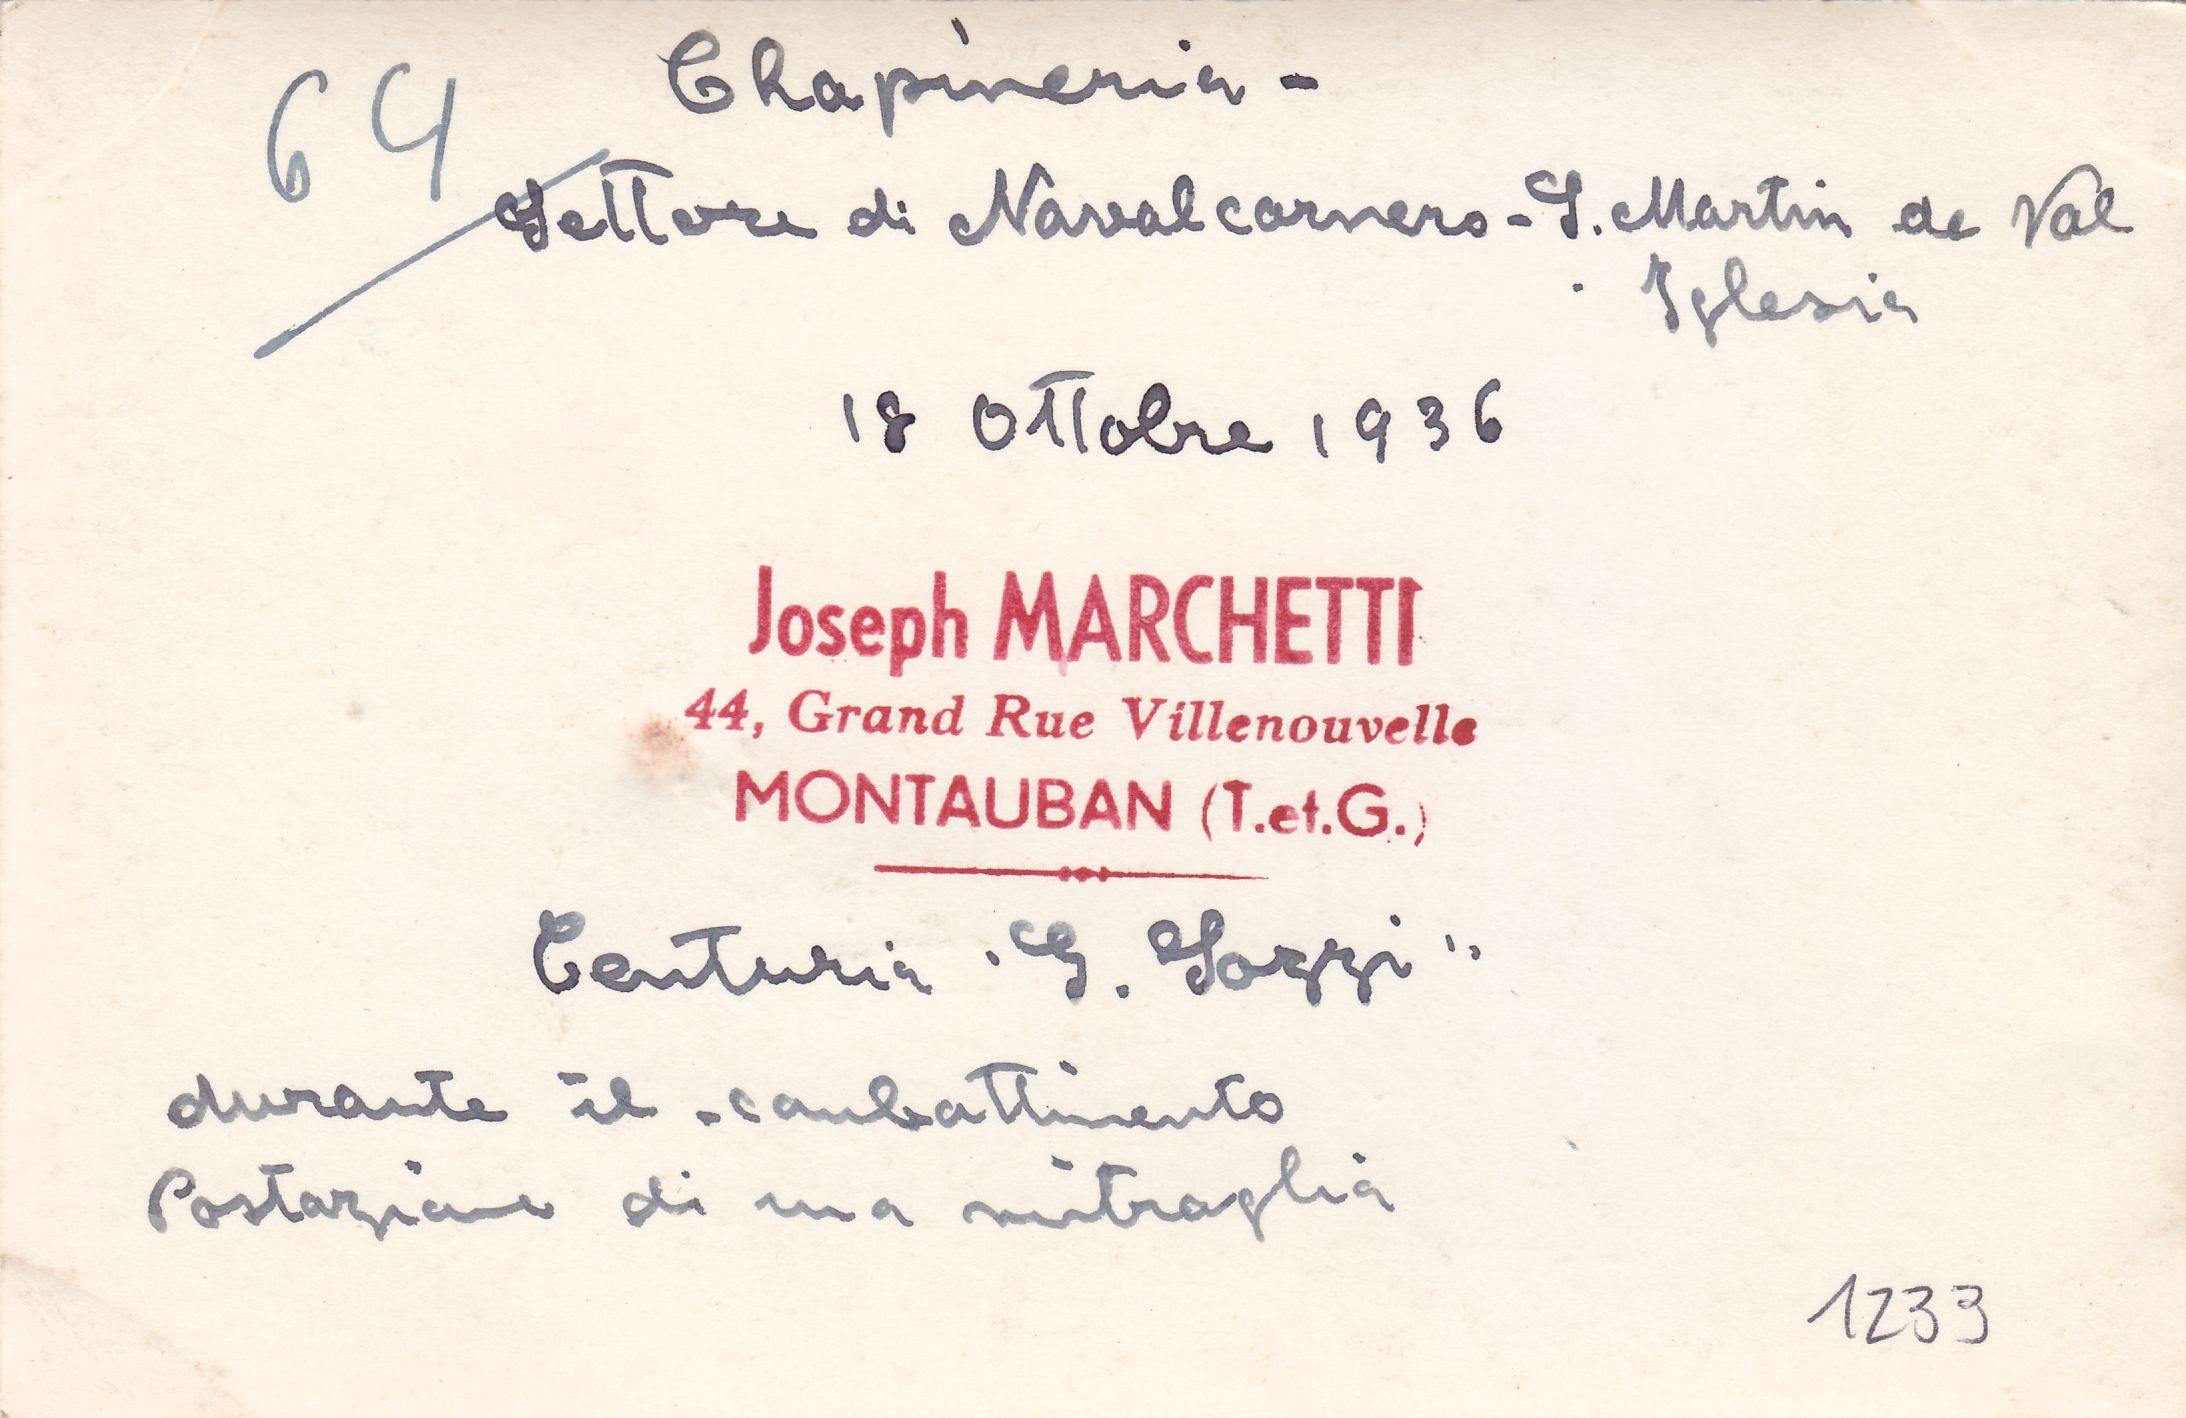 64
Chapineria -
Settore di Navalcarnero - S. Martin de Val
Iglesia
18 Ottobre 1936
Joseph MARCHETTI
44, Grand Rue Villenouvelle
MONTAUBAN (T.et.G.)
Centuria "G. Sozzi"
durante il combattimento
Postazione di una mitraglia
1233